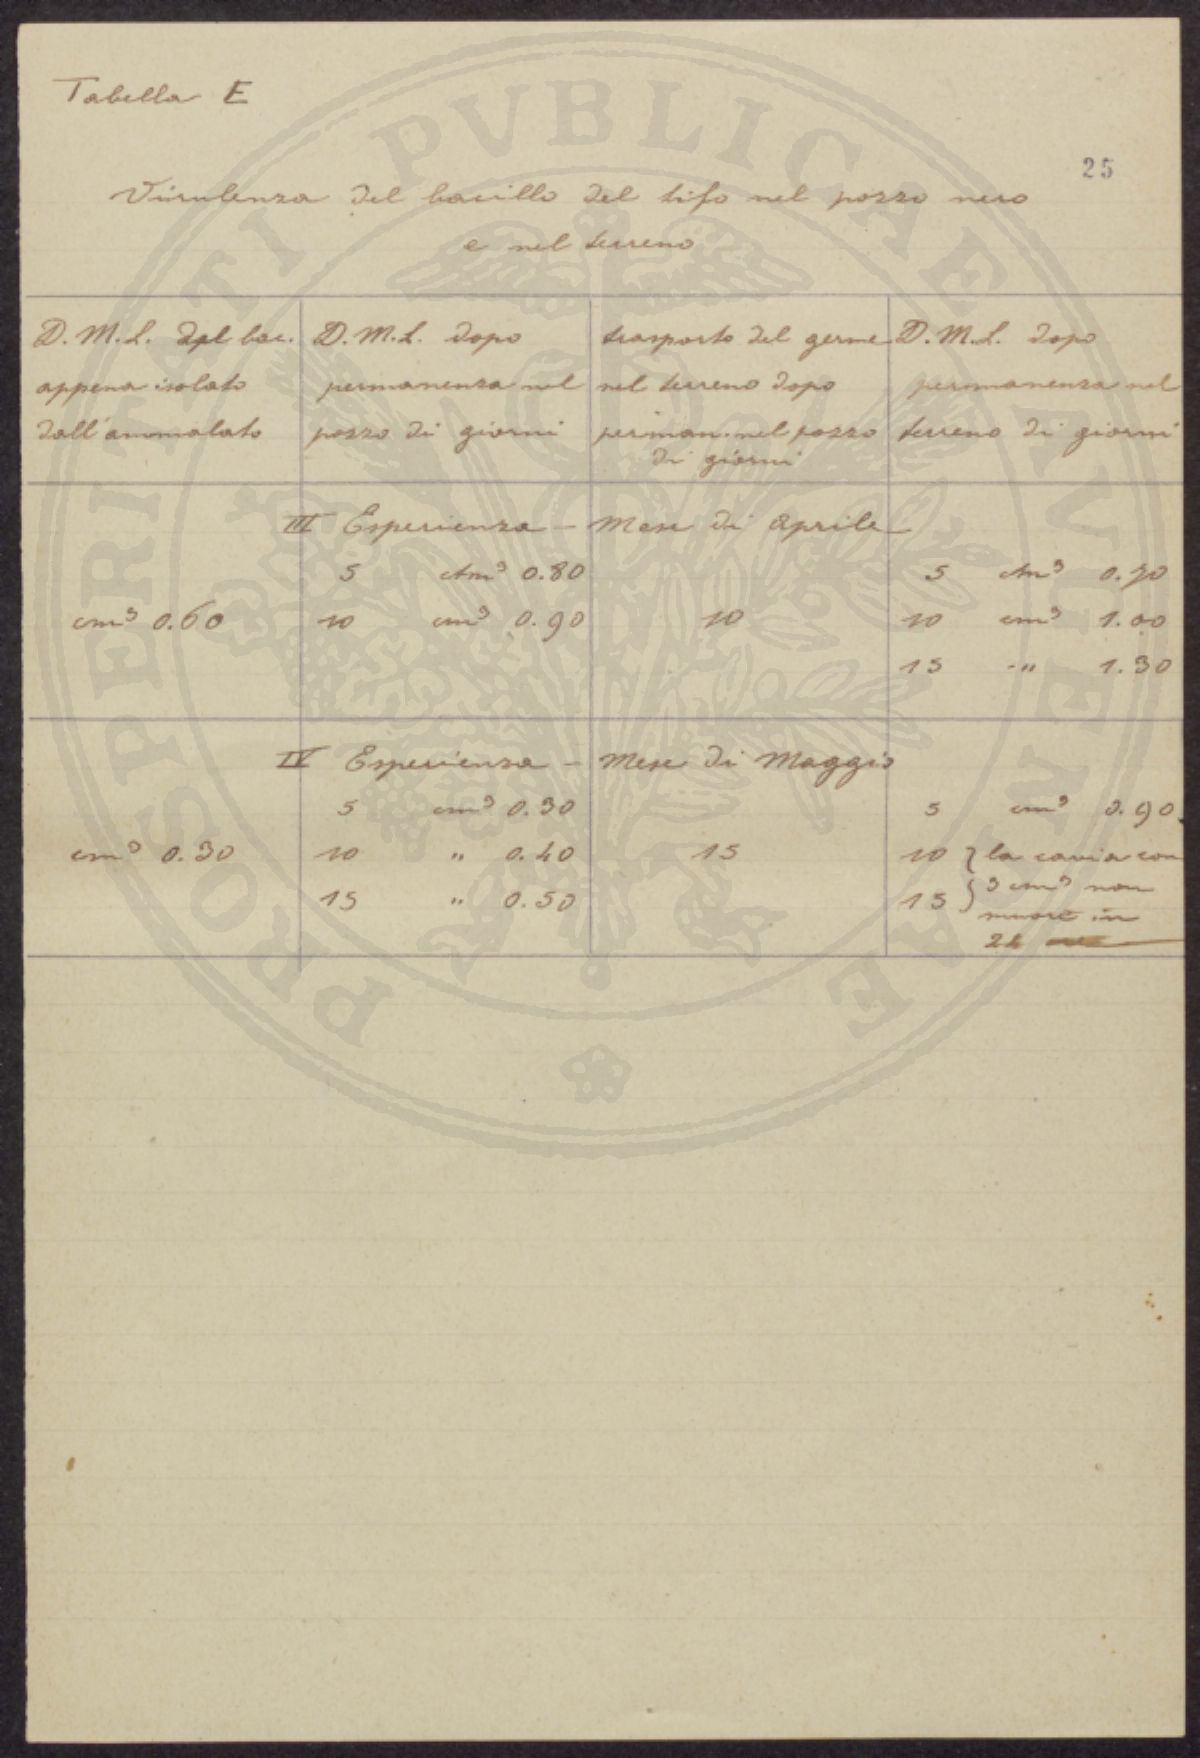 Tabella E
25
Virulenza del bacillo del tifo nel pozzo nero
e nel terreno
D.M.L. del bac. appena isolato dall'ammalato
D.M.L. dopo permanenza nel pozzo di giorni
trasporto del germe nel terreno dopo perman. nel pozzo di giorni
D.M.L. dopo permanenza nel terreno di giorni
III Esperienza - Mese di Aprile
5 cm³ 0.80
5 cm³
cm³ 0.60
10 cm³ 0.90
10
10 cm³ 1.00
15 -" 1.30
IV Esperienza - Mese di Maggio
5 cm³ 0.30
5 cm³ 0.90
cm³ 0.30
10 " 0.40
15
10 } la cavia con
15 " 0.50
15 } 3 cm³ non
muore in
24
PROSPERITATI PVBLICAE AVGENDAE